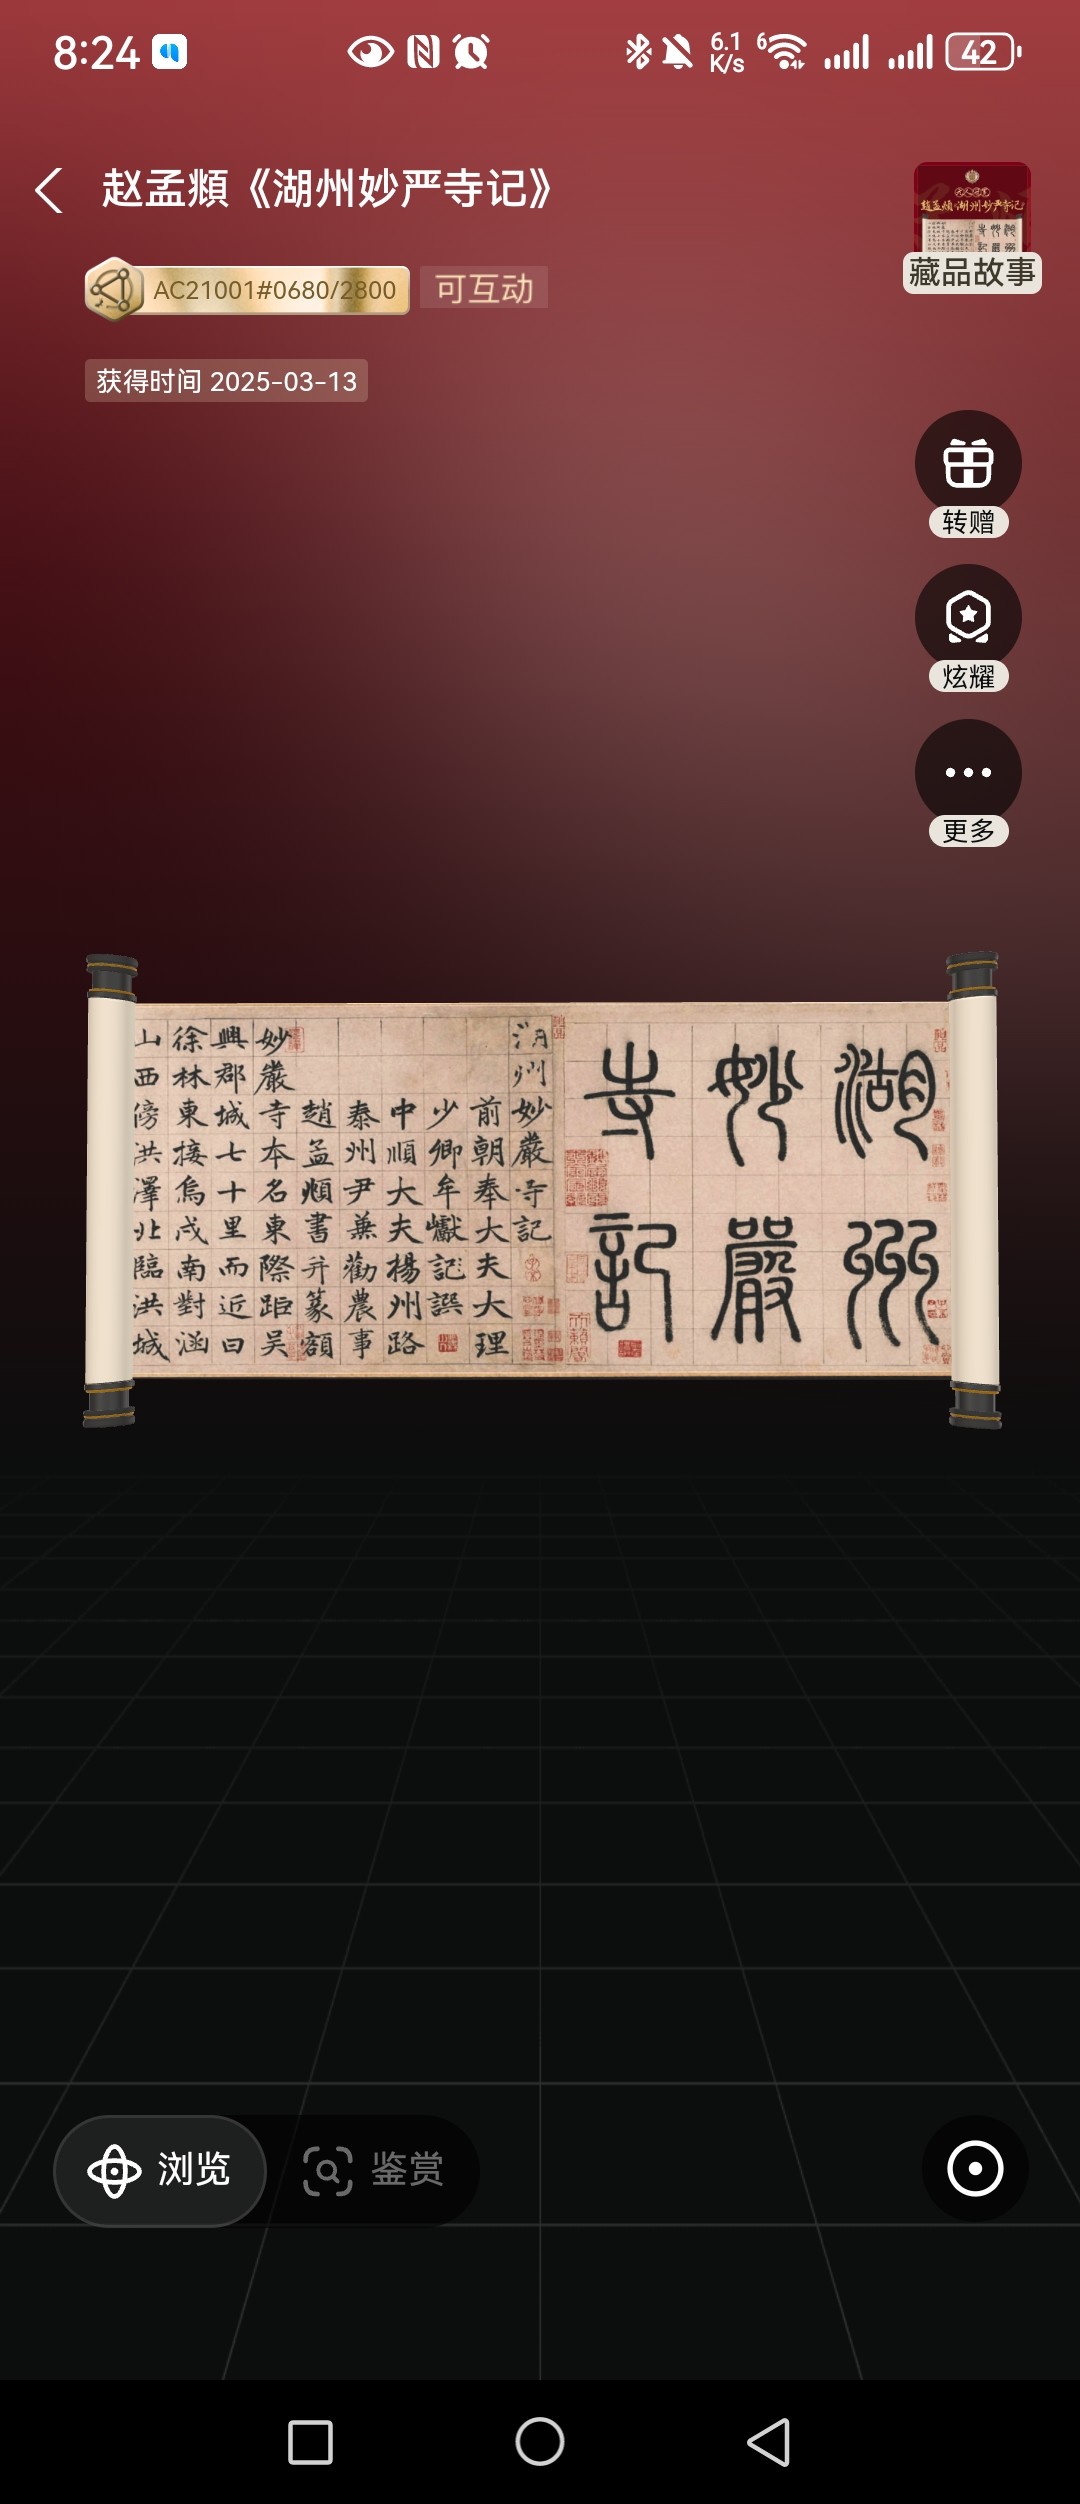 8:24
6.1
K/s
6
42
赵孟頫《湖州妙严寺记》
AC21001#0680/2800
可互动
获得时间 2025-03-13
趙孟頫·湖州妙严寺记
藏品故事
转赠
炫耀
更多
湖州
妙嚴
寺記
湖州妙嚴寺記
前朝奉大夫大理
少卿牟巘記譔
中順大夫楊州路
泰州尹兼勸農事
趙孟頫書并篆額
妙嚴寺本名東際距吳
興郡城七十里而近曰
徐林東接烏戍南對涵
山西傍洪澤北臨洪城
浏览
鉴赏